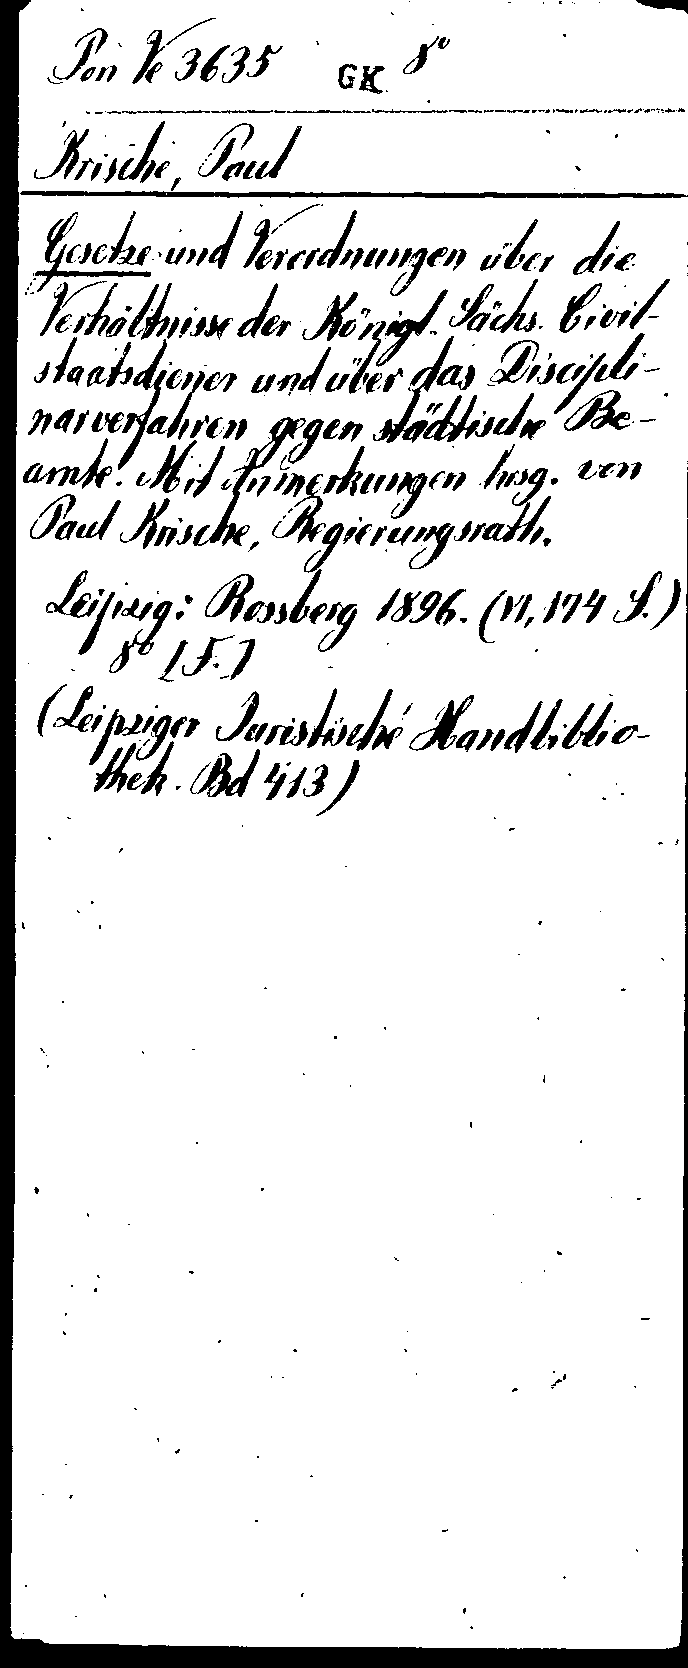 Pon Ve 3635 GK 8°
Krische, Paul
Gesetze und Verordnungen über die
Verhältnisse der Königl. Sächs. Civil-
staatsdiener und über das Discipli-
narverfahren gegen städtische Be-
amte. Mit Anmerkungen hrsg. von
Paul Krische, Regierungsrath.
Leipzig: Rossberg 1896. (VI, 174 S.)
8° [F.]
(Leipziger Juristische Handbiblio-
thek. Bd 413)